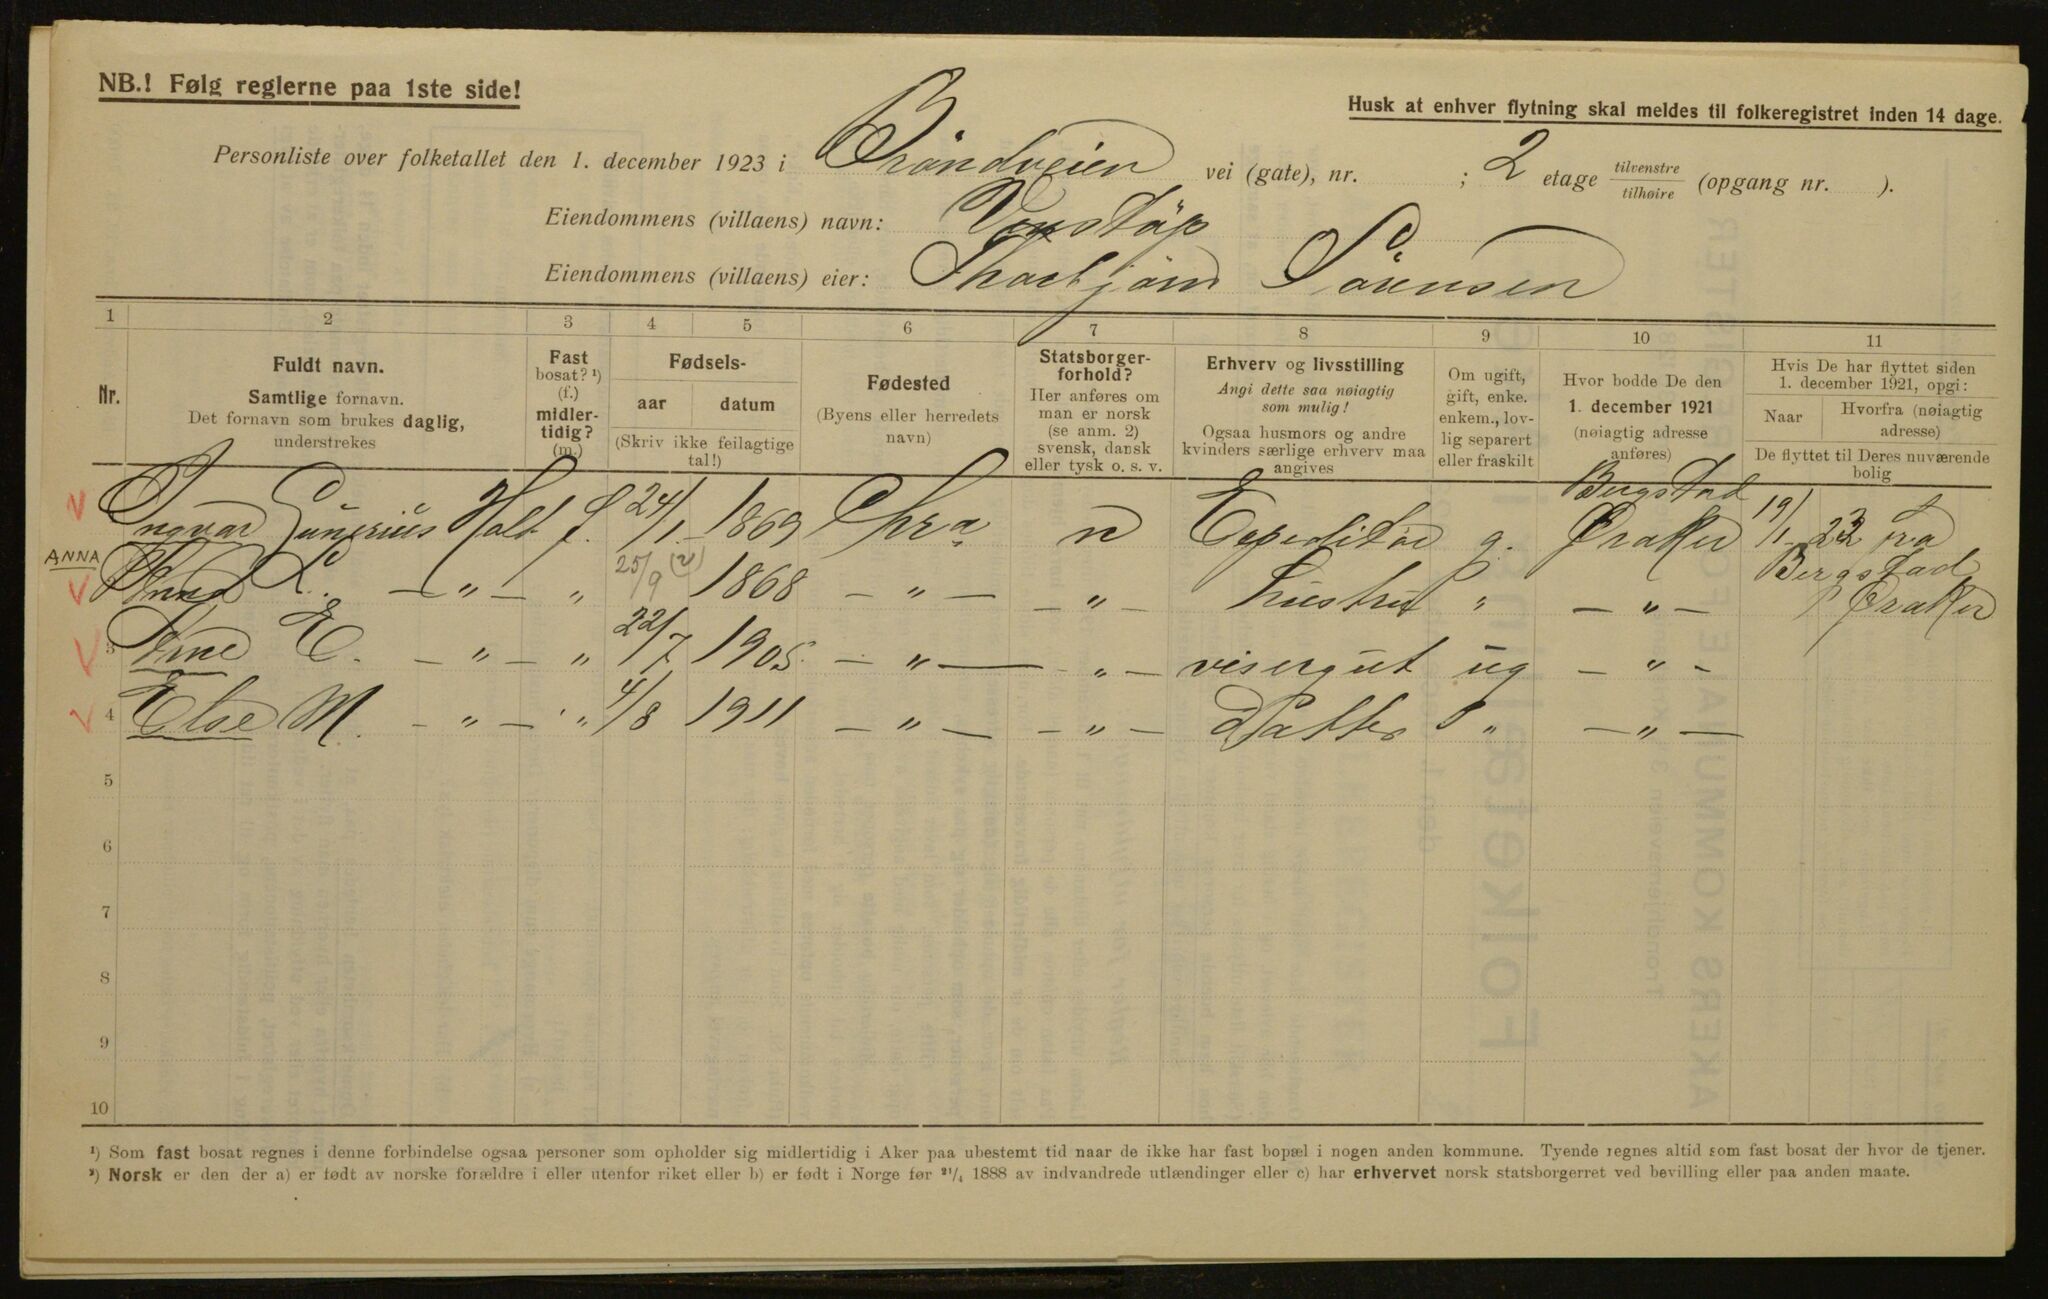 NB.! Følg reglerne paa 1ste side!
Husk at enhver flytning skal meldes til folkeregistret inden 14 dage.
Personliste over folketallet den 1. december 1923 i Bröndveien vei (gate), nr. ; 2 etage tilvenstre tilhøire (opgang nr. ).
Eiendommens (villaens) navn:
Eiendommens (villaens) eier: Thorbjörn Sörensen
1 2 3 4 5 6 7 8 9 10 11
Nr.
Fuldt navn.
Samtlige fornavn.
Det fornavn som brukes daglig,
understrekes
Fast
bosat? ¹)
(f.)
midler-
tidig?
(m.)
Fødsels-
aar datum
(Skriv ikke feilagtige
tal!)
Fødested
(Byens eller herredets
navn)
Statsborger-
forhold?
Her anføres om
man er norsk
(se anm. 2)
svensk, dansk
eller tysk o. s. v.
Erhverv og livsstilling
Angi dette saa nøiagtig
som mulig!
Ogsaa husmors og andre
kvinders særlige erhverv maa
angives
Om ugift,
gift, enke.
enkem., lov-
lig separert
eller fraskilt
Hvor bodde De den
1. december 1921
(nøiagtig adresse
anføres)
Hvis De har flyttet siden
1. december 1921, opgi:
Naar
Hvorfra (nøiagtig
adresse)
De flyttet til Deres nuværende
bolig
Bergstad
Ingvar Gunerius Holt f. 24/1 1869 Chra n Expeditör g. Öraker 19/1 - 23 fra
ANNA
Anna L. — " — " 25/9 (2) 1868 — " — — " — Hustru " — " — Bergstad
Öraker
3 Arne E. — " — " 22/7 1905 — " — " — visergut ug — " -
4 Else M. — " — " 4/8 1911 — " — — " — Datter " — " —
5
6
7
8
9
10
¹) Som fast bosat regnes i denne forbindelse ogsaa personer som opholder sig midlertidig i Aker paa ubestemt tid naar de ikke har fast bopæl i nogen anden kommune. Tyende regnes altid som fast bosat der hvor de tjener.
²) Norsk er den der a) er født av norske forældre i eller utenfor riket eller b) er født i Norge før ²¹/₄ 1888 av indvandrede utlændinger eller c) har erhvervet norsk statsborgerret ved bevilling eller paa anden maate.